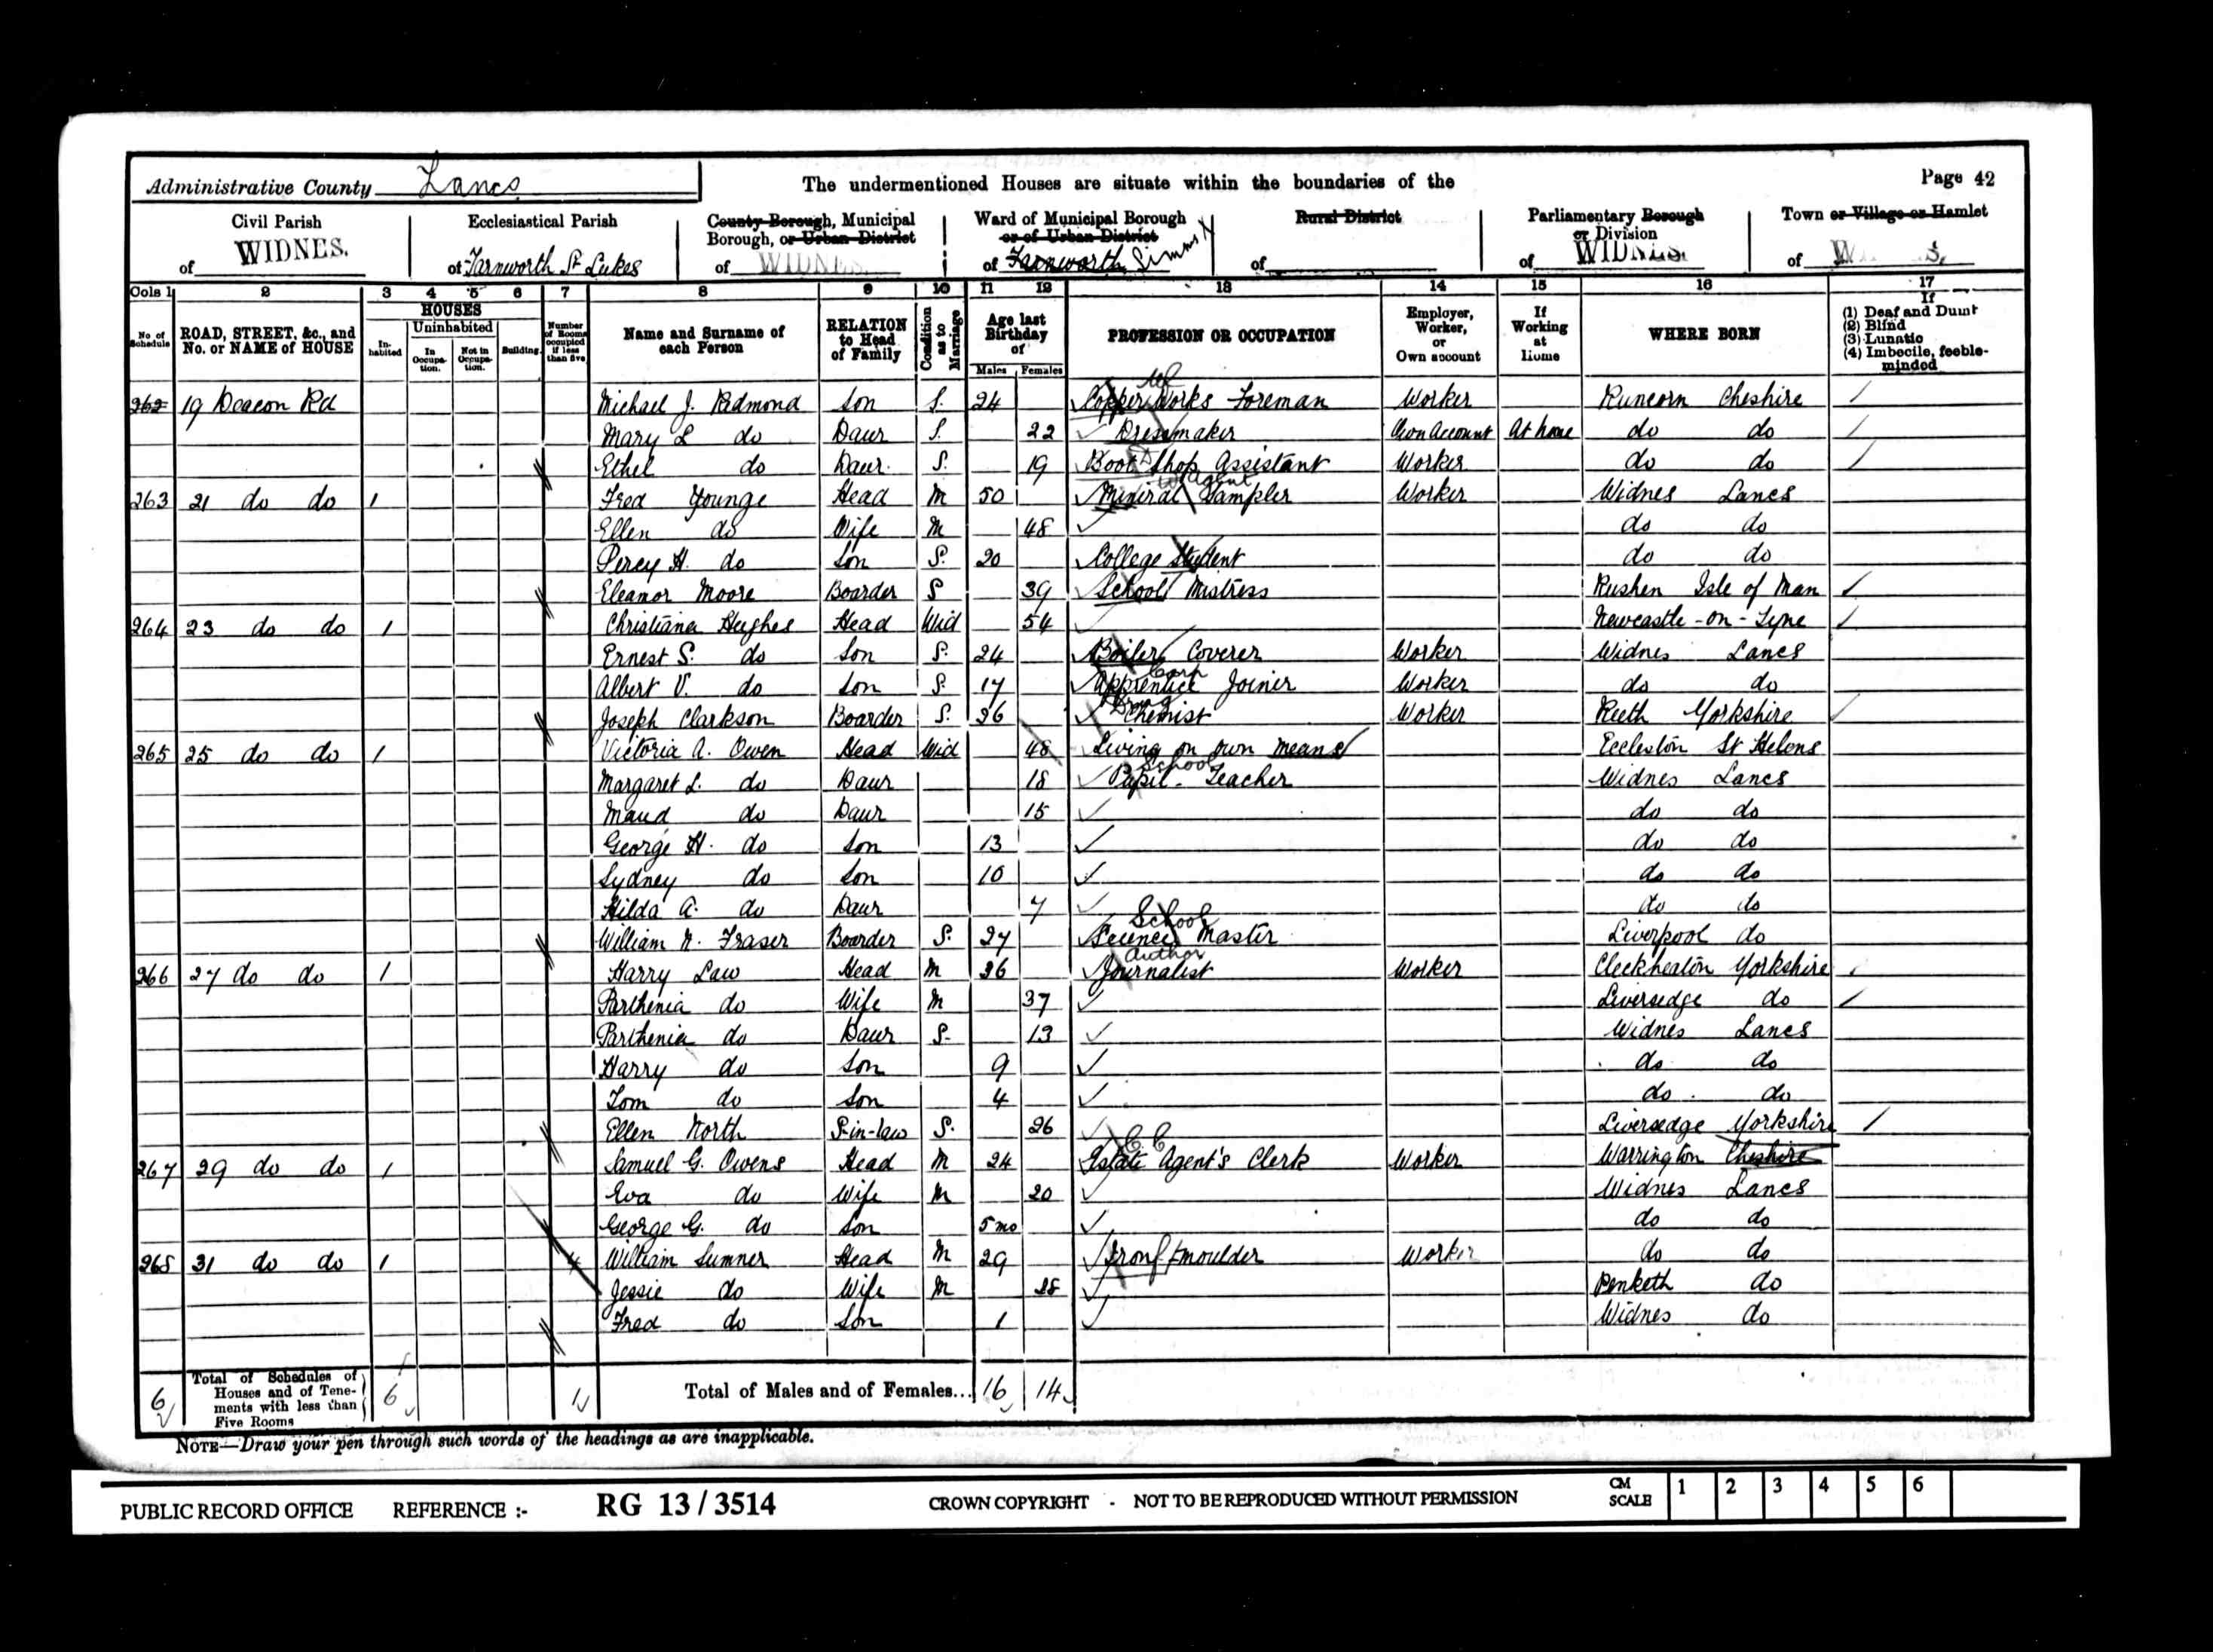 Administrative County Lancs
The undermentioned Houses are situate within the boundaries of the
Page 42
Civil Parish of WIDNES.
Ecclesiastical Parish of Farnworth St Lukes
County Borough, Municipal Borough, or Urban District of WIDNES
Ward of Municipal Borough or of Urban District of Farnworth Simms X
Rural District of
Parliamentary Borough or Division of WIDNES.
Town or Village or Hamlet of W S.
Cols 1 2 3 4 5 6 7 8 9 10 11 12 13 14 15 16 17
No. of Schedule
ROAD, STREET, &c., and No. or NAME of HOUSE
HOUSES
Inhabited
Uninhabited
In Occupation.
Not in Occupation.
Building.
Number of Rooms occupied if less than five
Name and Surname of each Person
RELATION to Head of Family
Condition as to Marriage
Age last Birthday of
Males Females
PROFESSION OR OCCUPATION
Employer, Worker, or Own account
If Working at Home
WHERE BORN
If
(1) Deaf and Dumb
(2) Blind
(3) Lunatic
(4) Imbecile, feeble-minded
262 19 Deacon Rd Michael J. Redmond Son S. 24 Copper Works Foreman Worker Runcorn Cheshire
Mary L do Daur S. 22 Dressmaker Own Account At home do do
Ethel do Daur. S. 19 Boot Shop Assistant Worker do do
Agent
263 21 do do 1 Fred Younge Head M 50 Mineral Sampler Worker Widnes Lancs
Ellen do Wife M 48 do do
Percy H. do Son S. 20 College Student do do
Eleanor Moore Boarder S 39 School Mistress Rushen Isle of Man
264 23 do do 1 Christiana Hughes Head Wid 54 Newcastle-on-Tyne
Ernest S. do Son S. 24 Boiler Coverer Worker Widnes Lancs
Carp
Albert V. do Son S. 17 Apprentice Joiner Worker do do
Drug
Joseph Clarkson Boarder S. 26 Chemist Worker Reeth Yorkshire
265 25 do do 1 Victoria A. Owen Head Wid 48 Living on own means Eccleston St Helens
School
Margaret L. do Daur 18 Pupil-Teacher Widnes Lancs
Maud do Daur 15 do do
George H. do Son 13 do do
Sydney do Son 10 do do
Hilda A. do Daur 7 do do
School
William N. Fraser Boarder S. 27 Science Master Liverpool do
Author
266 27 do do 1 Harry Law Head M 36 Journalist Worker Cleckheaton Yorkshire
Parthenia do Wife M 37 Liversedge do
Parthenia do Daur S. 13 Widnes Lancs
Harry do Son 9 do do
Tom do Son 4 do do
Ellen North S-in-law S. 26 Liversedge Yorkshire
C.C
267 29 do do 1 Samuel G. Owens Head M 24 Estate Agent's Clerk Worker Warrington Cheshire
Eva do Wife M 20 Widnes Lancs
George G. do Son 5 mo do do
268 31 do do 1 4 William Sumner Head M 29 Iron moulder Worker do do
Jessie do Wife M 28 Penketh do
Fred do Son 1 Widnes do
6 Total of Schedules of Houses and of Tenements with less than Five Rooms 6 1 Total of Males and of Females... 16 14
NOTE—Draw your pen through such words of the headings as are inapplicable.
PUBLIC RECORD OFFICE REFERENCE :- RG 13/3514 CROWN COPYRIGHT - NOT TO BE REPRODUCED WITHOUT PERMISSION CM SCALE 1 2 3 4 5 6